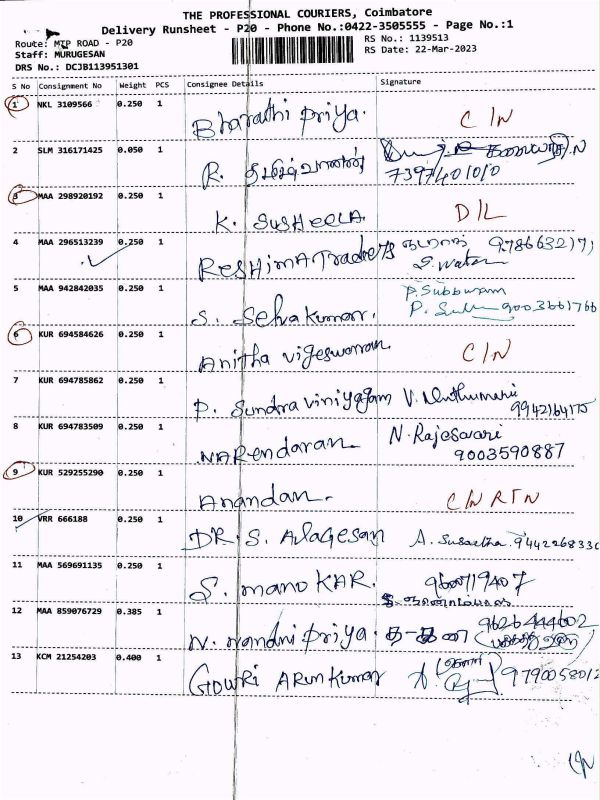 THE PROFESSIONAL COURIERS, Coimbatore
Delivery Runsheet - P20 - Phone No.:0422-3505555 - Page No.:1
Route: MTP ROAD - P20 RS No.: 1139513
Staff: MURUGESAN RS Date: 22-Mar-2023
DRS No.: DCJB113951301
S No Consignment No Weight PCS Consignee Details Signature
1 NKL 3109566 0.250 1
Bharathi Priya. C/N
2 SLM 316171425 0.050 1
R. தமிழ்வாணன்
7397401010
3 MAA 298920192 0.250 1
K. SUSHEELA. D/L
4 MAA 296513239 0.250 1
RESHIMA Traders 9786632171
5 MAA 942842035 0.250 1
P. Subbu
S. Selvakumar. P. 9003661766
6 KUR 694584626 0.250 1
Anitha vigeswaran. C/N
7 KUR 694785862 0.250 1
P. Sundra viniyagam V. Muthumari
9942164175
8 KUR 694783509 0.250 1
NARendaran. N. Rajeswari
9003590887
9 KUR 529255290 0.250 1
Anandan. C/N RTN
10 VRR 666188 0.250 1
DR. S. Alagesan A. 944226833
11 MAA 569691135 0.250 1
S. manoKAR. 9600719407
12 MAA 859076729 0.385 1
9626444602
N. nandni priya.
13 KCM 21254203 0.400 1
GOWRI ARun Kumar 979005801